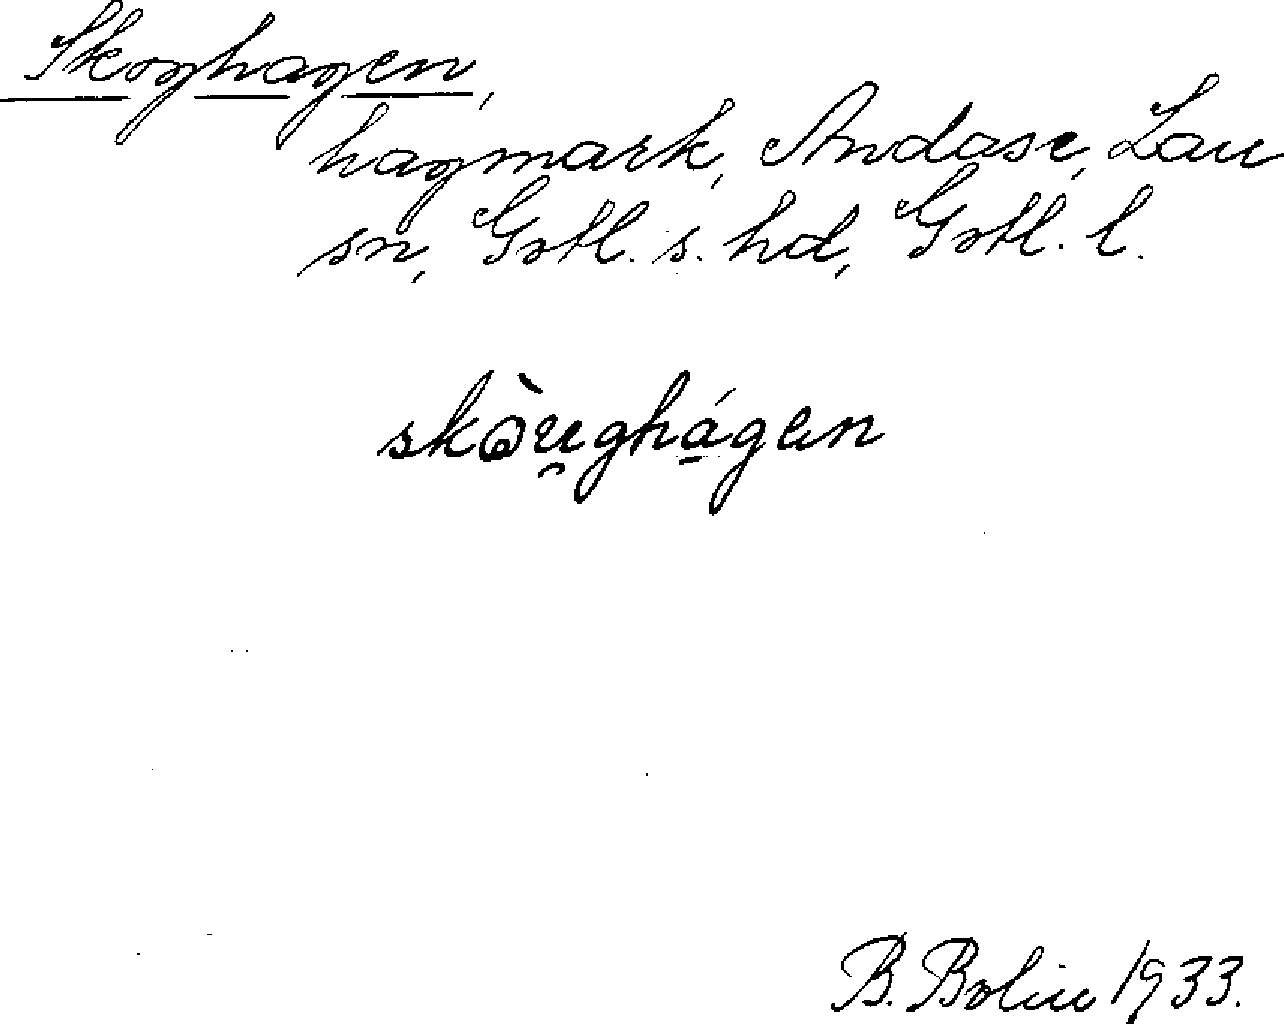 Skoghagen,
hagmark, Andarse, Lau
sn, Gotl. s. hd, Gotl. l.
skòu̯ghá̠gen
B. Bolin 1933.